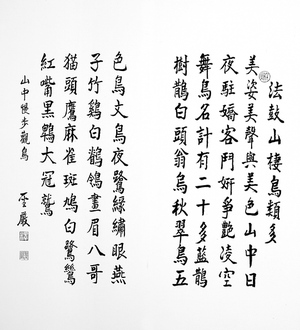 法鼓山棲鳥類多
美姿美聲與美色山中日
夜駐嬌客鬥妍爭艷凌空
舞鳥名計有二十多藍鵲
樹鵲白頭翁烏秋翠鳥五
色鳥文鳥夜鷺綠繡眼燕
子竹鷄白鶺鴒畫眉八哥
猫頭鷹麻雀斑鳩白鷺鷥
紅嘴黑鵯大冠鷲
山中慢步觀鳥
聖嚴